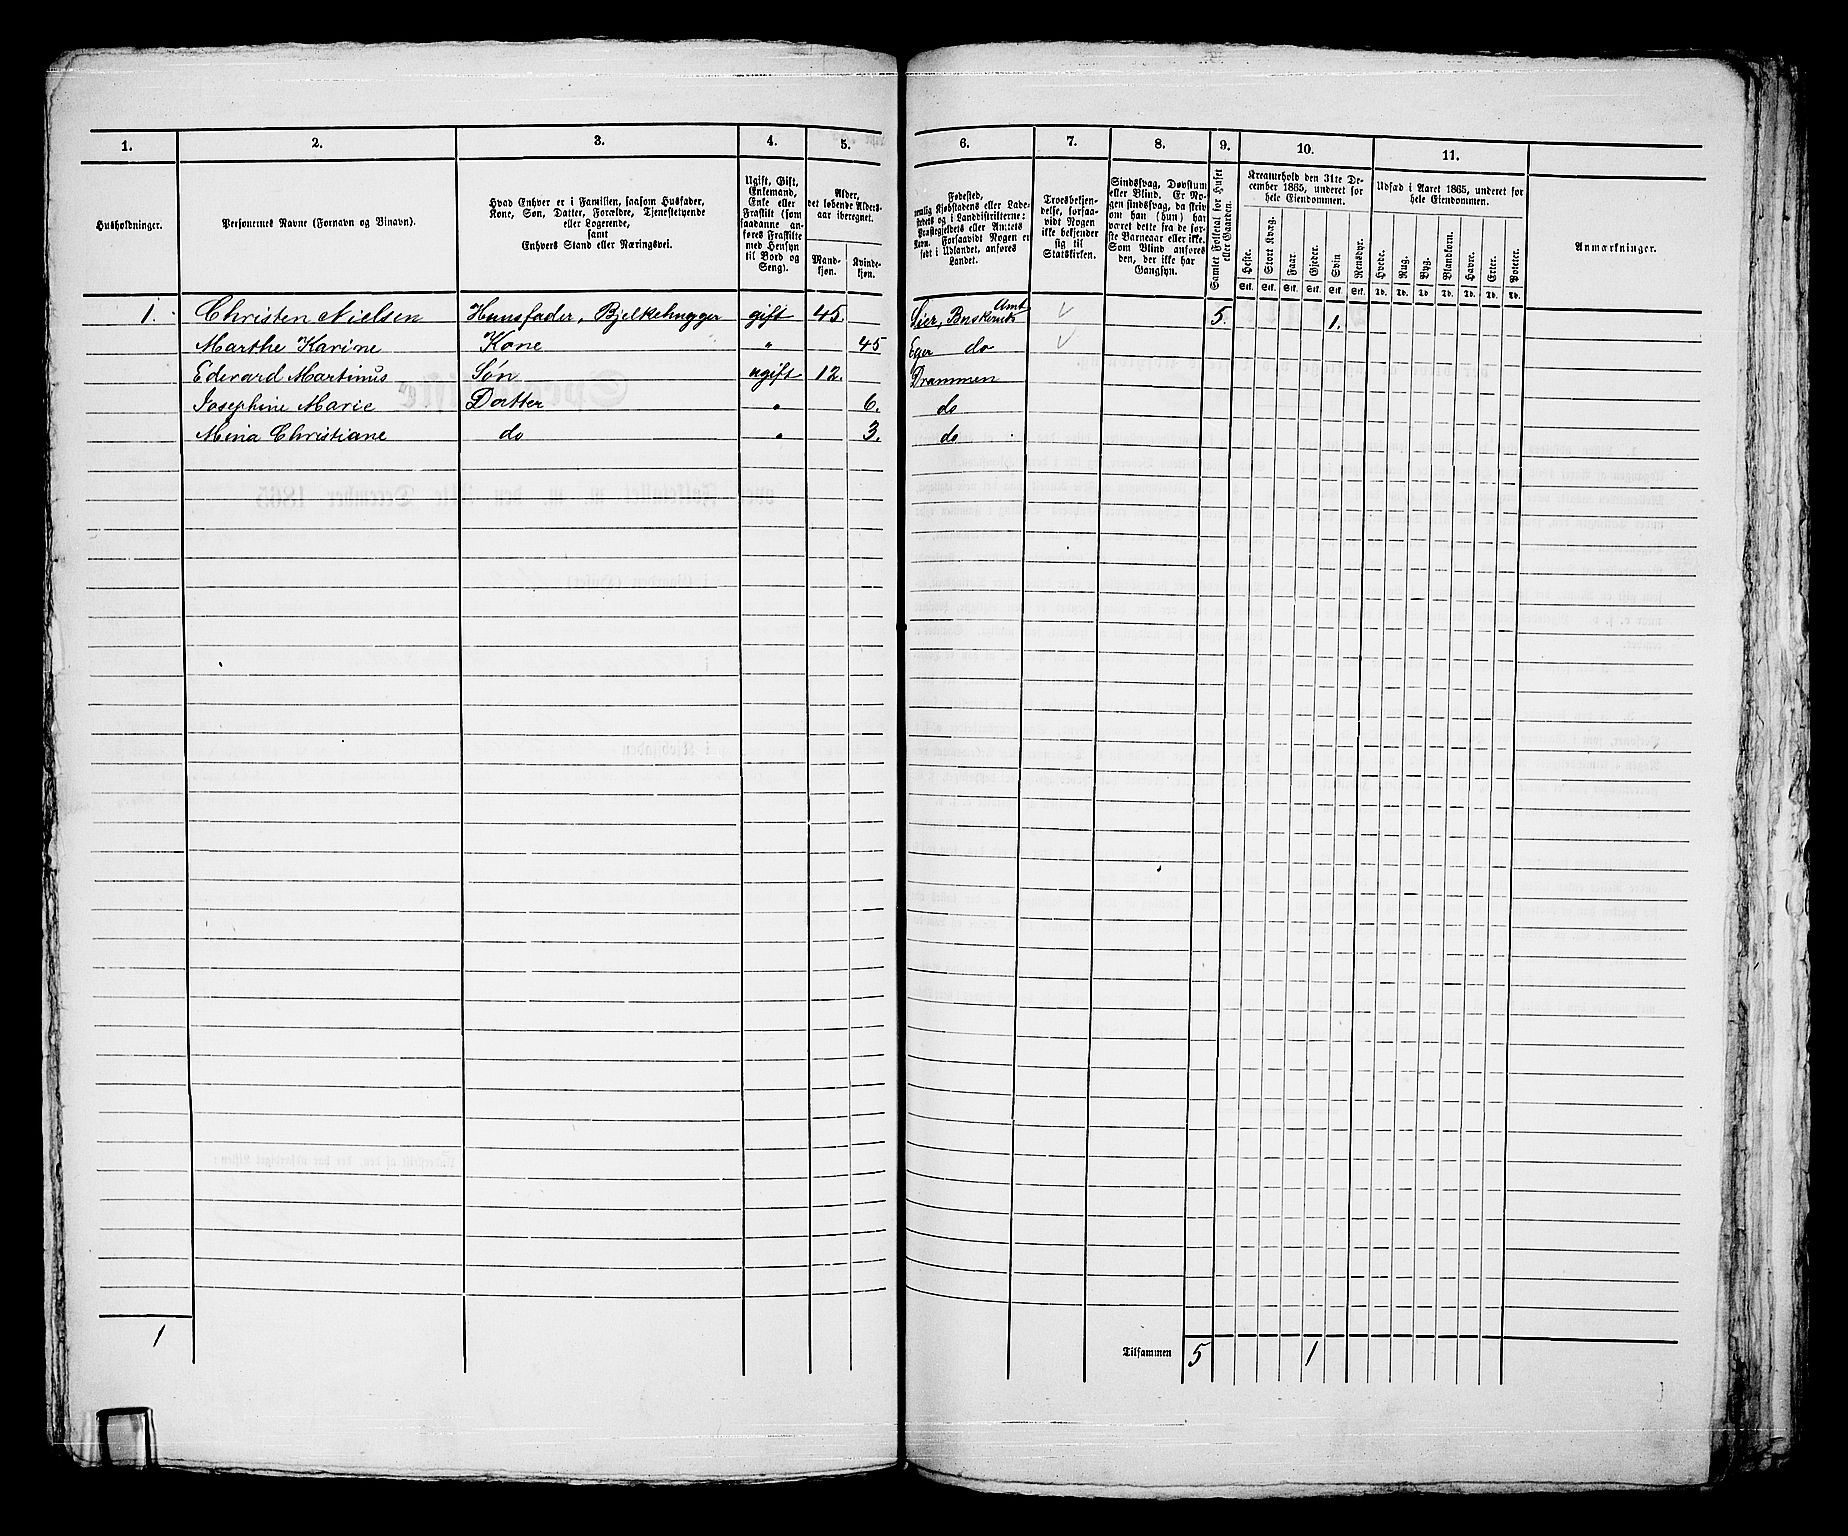 1. 2. 3. 4. 5. 6. 7. 8. 9. 10. 11.
Husholdninger.
Personernes Navne (Fornavn og Binavn).
Hvad Enhver er i Familien, saasom Husfader,
Kone, Søn, Datter, Forældre, Tjenestetyende
eller Logerende,
samt
Enhvers Stand eller Næringsvei.
Ugift, Gift,
Enkemand,
Enke eller
Fraskilt (som
saadanne an-
føres Fraskilte
med Hensyn
til Bord og
Seng).
Alder,
det løbende Alders-
aar iberegnet.
Mand-
kjøn.
Kvinde-
kjøn.
Fødested,
nemlig Kjøbstadens eller Lade-
stedets og i Landdistrikterne:
Præstegjeldets eller Amtets
Navn. Forsaavidt Nogen er
født i Udlandet, anføres
Landet.
Troesbekjen-
delse, forsaa-
vidt Nogen
ikke bekjender
sig til
Statskirken.
Sindssvag, Døvstum
eller Blind. Er No-
gen sindssvag, da skriv
om han (hun) har
været dette fra de før-
ste Barneaar eller ikke.
Som Blind anføres
den, der ikke har
Gangsyn.
Samlet Folketal for Huset
eller Gaarden.
Kreaturhold den 31te De-
cember 1865, underet for
hele Eiendommen.
Heste. Stort Kvæg. Faar. Gjeder. Svin Rensdyr.
Stk. Stk. Stk. Stk. Stk. Stk.
Udsæd i Aaret 1865, underet for
hele Eiendommen.
Hvede. Rug. Byg. Blandkorn. Havre. Erter. Poteter.
Td. Td. Td. Td. Td. Td. Td.
Anmærkninger.
1. Christen Nielsen Huusfader, Bjelkehugger gift 45. Lier, Buskeruds Amt 5. 1.
Marthe Karine Kone " 45 Eger do
Edevard Martinus Søn ugift 12. Drammen
Josephine Marie Dotter " 6. do
Mina Christiane do " 3. do
1 Tilsammen 5 1